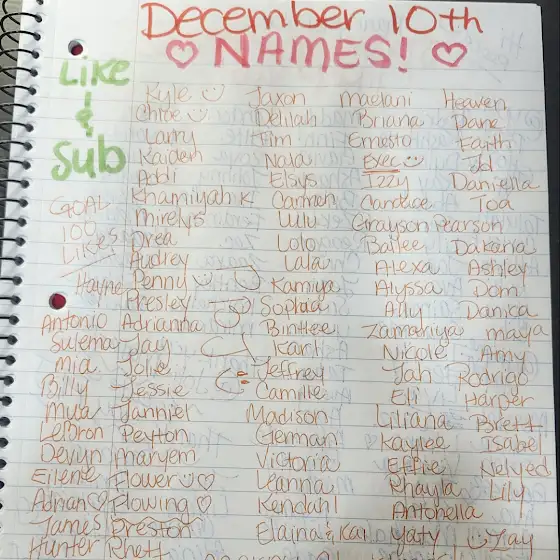 December 10th
♡ NAMES! ♡
Like
&
Sub
GOAL
100
Likes
Kyle ☺ Jaxon Maelani Heaven
Chloe Delilah Briana Dane
Larry Tim Ernesto Faith
Kaiden Naja Exec ☺ Jd
Addi Elsys Izzy Daniella
Khamiyah K Carmen Candice Toa
Mirelys Lulu Grayson Pearson
Drea Lolo Bailee Dakaria
Audrey Lala Alexa Ashley
Hayne Penny Kamiya Alyssa Dom
Presley Sophia Ally Danica
Antonio Adrianna Bintee Zamariya maya
Sulema Jay Karli Nicole Amy
Mia Jolie Jeffrey Jah Rodrigo
Billy Jessie Camille Eli Harper
Mya Janniel Madison Liliana Brett
LeBron Peyton German Kaylee Isabel
Devyn maryem Victoria Effie Nelyed
Eilene Flower ☺♡ Leanna Khayla Lily
Adrian♡ Flowing ♡ Kendahl Antonella
James Preston Elaina & Kai Yaty ☺Jay
Hunter Rhett